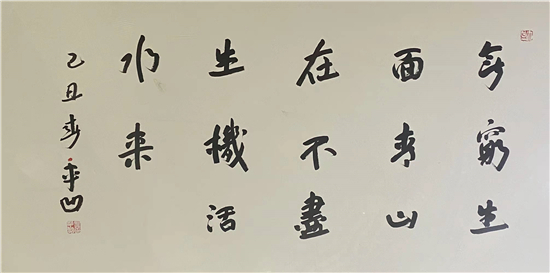 無窮生
面青山
在不盡
生機活
水来
乙丑春 平凹